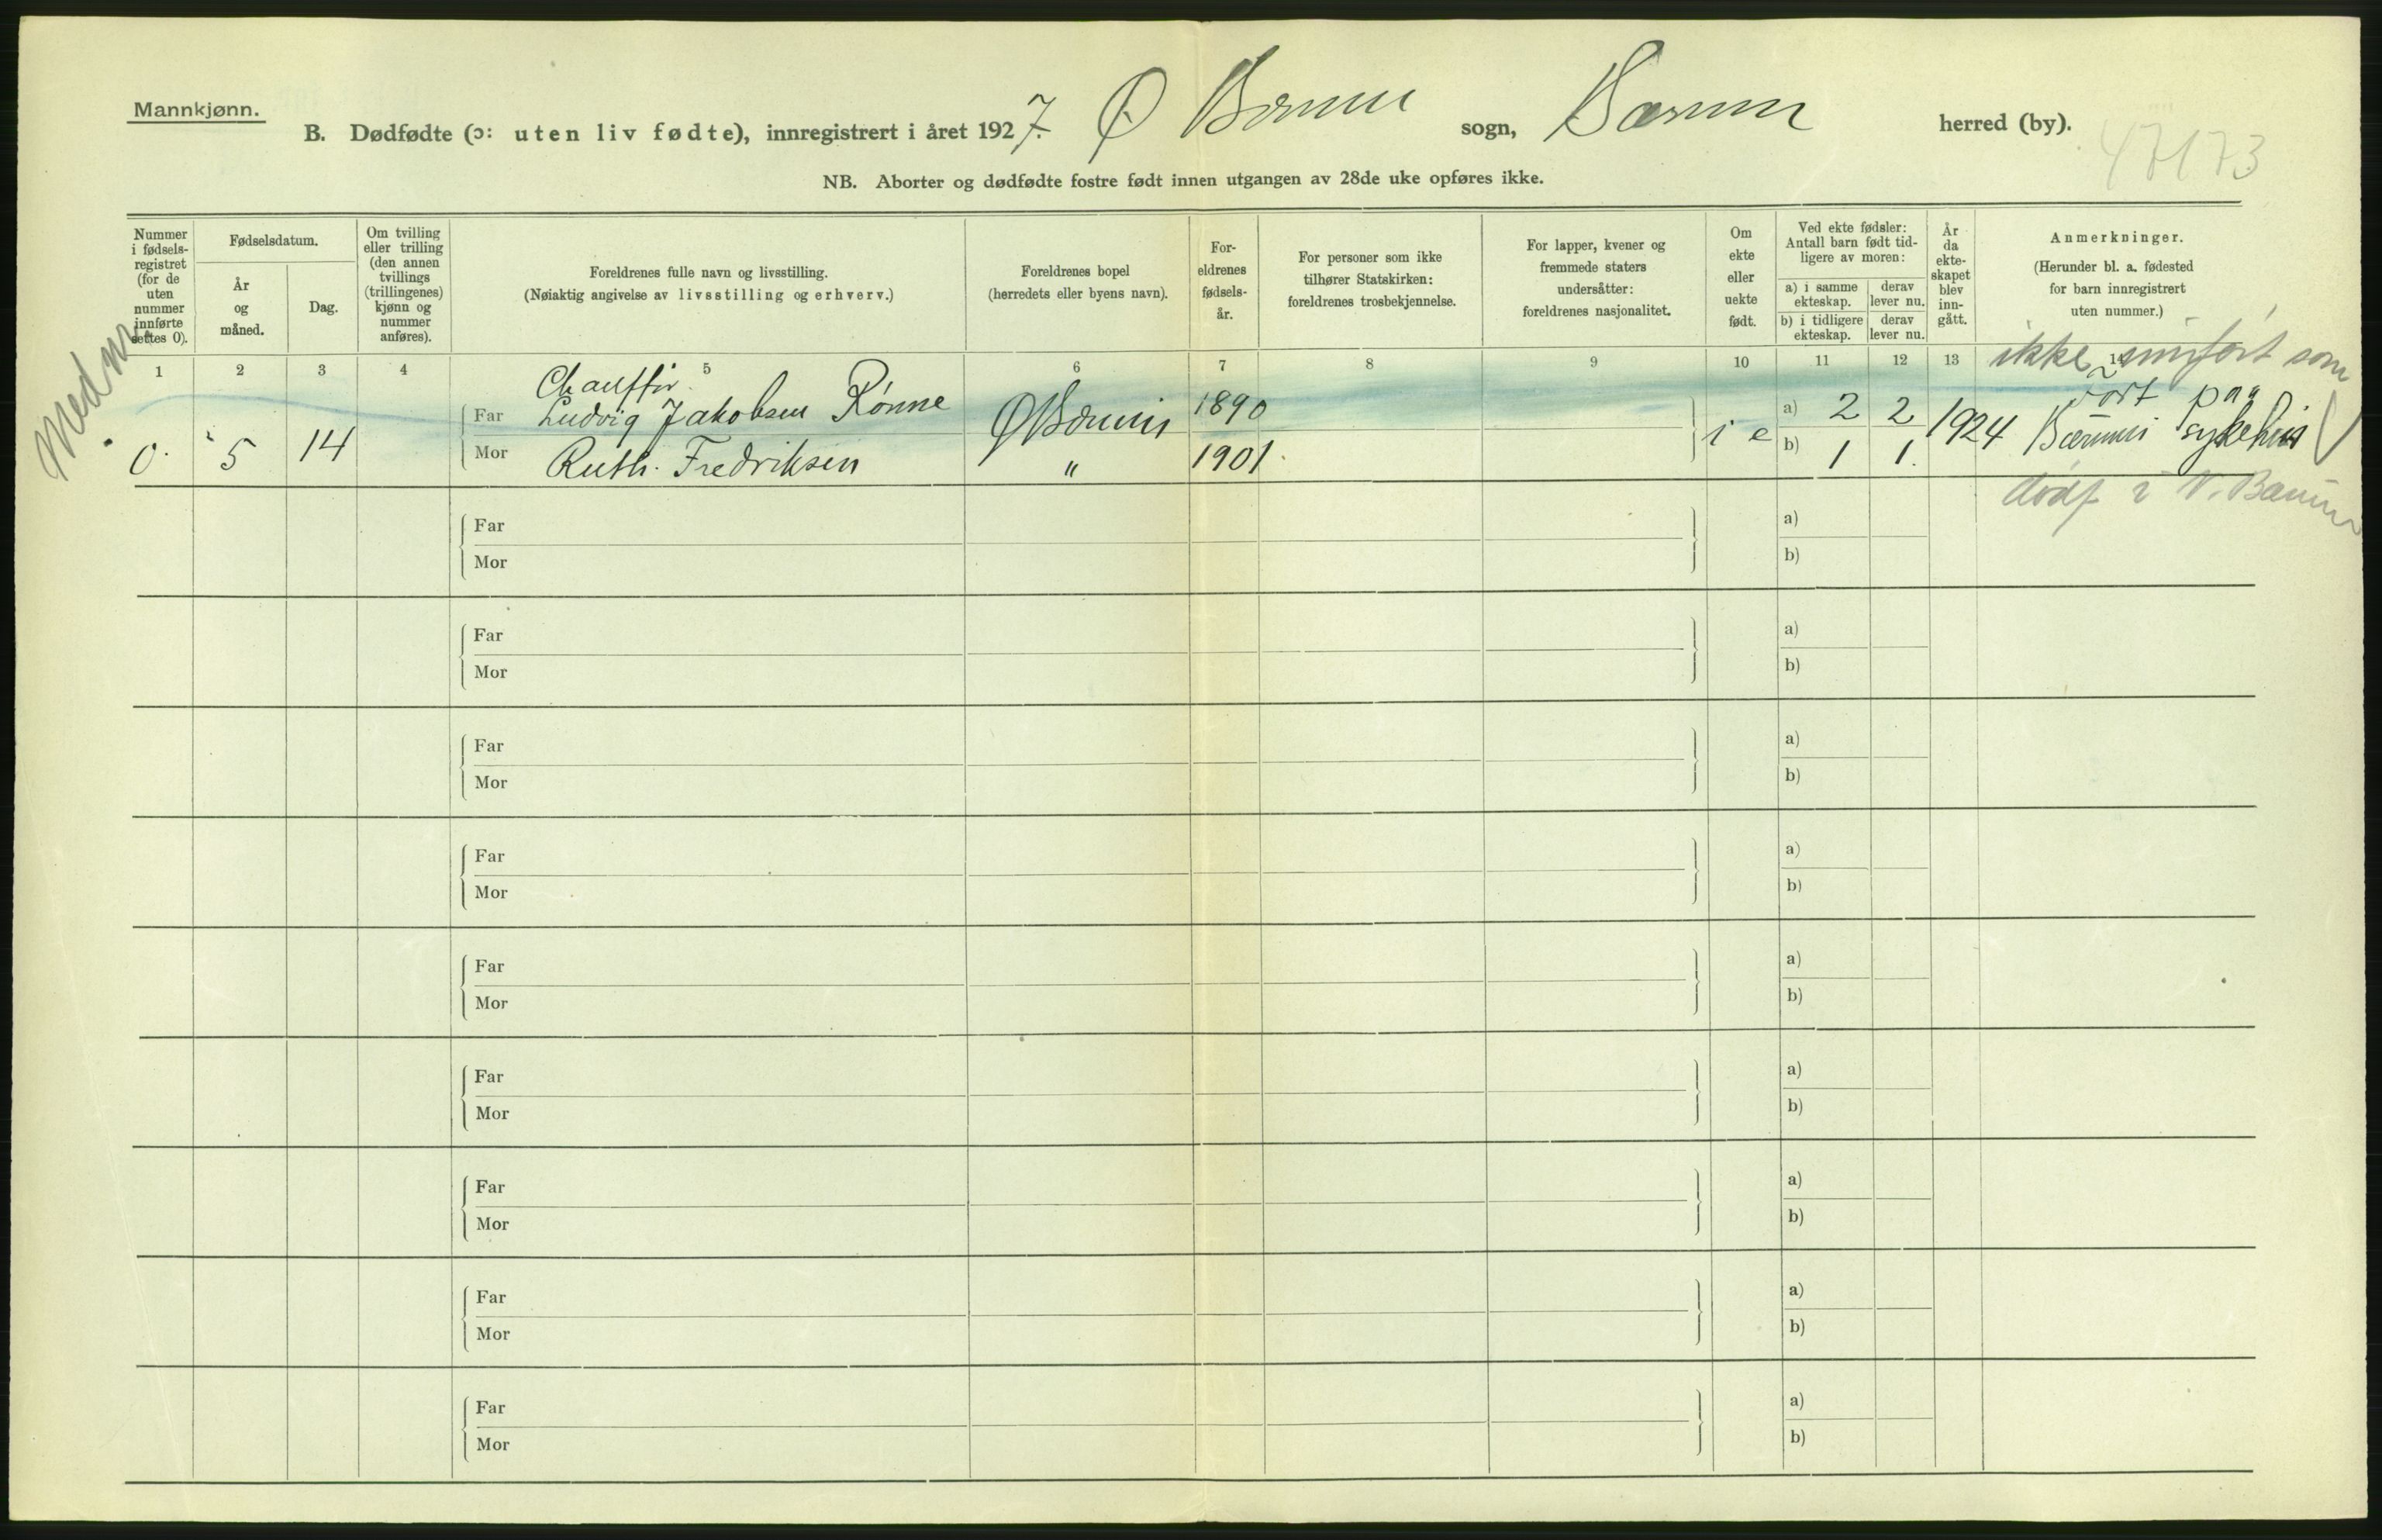 Mannkjønn.
B. Dødfødte (ɔ: uten liv fødte), innregistrert i året 1927. Ø Bærum sogn, Bærum herred (by).
47173
NB. Aborter og dødfødte fostre født innen utgangen av 28de uke opføres ikke.
Nummer i fødsels-registret (for de uten nummer innførte settes 0).
Fødselsdatum.
År og måned.
Dag.
Om tvilling eller trilling (den annen tvillings (trillingenes) kjønn og nummer anføres).
Foreldrenes fulle navn og livsstilling.
(Nøiaktig angivelse av livsstilling og erhverv.)
Foreldrenes bopel
(herredets eller byens navn).
For-eldrenes fødsels-år.
For personer som ikke tilhører Statskirken: foreldrenes trosbekjennelse.
For lapper, kvener og fremmede staters undersåtter: foreldrenes nasjonalitet.
Om ekte eller uekte født.
Ved ekte fødsler: Antall barn født tid-ligere av moren:
a) i samme ekteskap.
derav lever nu.
b) i tidligere ekteskap.
derav lever nu.
År da ekte-skapet blev inn-gått.
Anmerkninger.
(Herunder bl. a. fødested for barn innregistrert uten nummer.)
1 2 3 4 5 6 7 8 9 10 11 12 13 14
Med nr.
ikke innført som
Chauffør.
Far Ludvig Jakobsen Rønne Ø Bærum 1890 a) 2 2
0. 5 14 i e 1924 født på Bærums sykehus
Mor Ruth Fredriksen " 1901. b) 1 1.
dødf i V. Bærum
Far a)
Mor b)
Far a)
Mor b)
Far a)
Mor b)
Far a)
Mor b)
Far a)
Mor b)
Far a)
Mor b)
Far a)
Mor b)
Far a)
Mor b)
Far a)
Mor b)